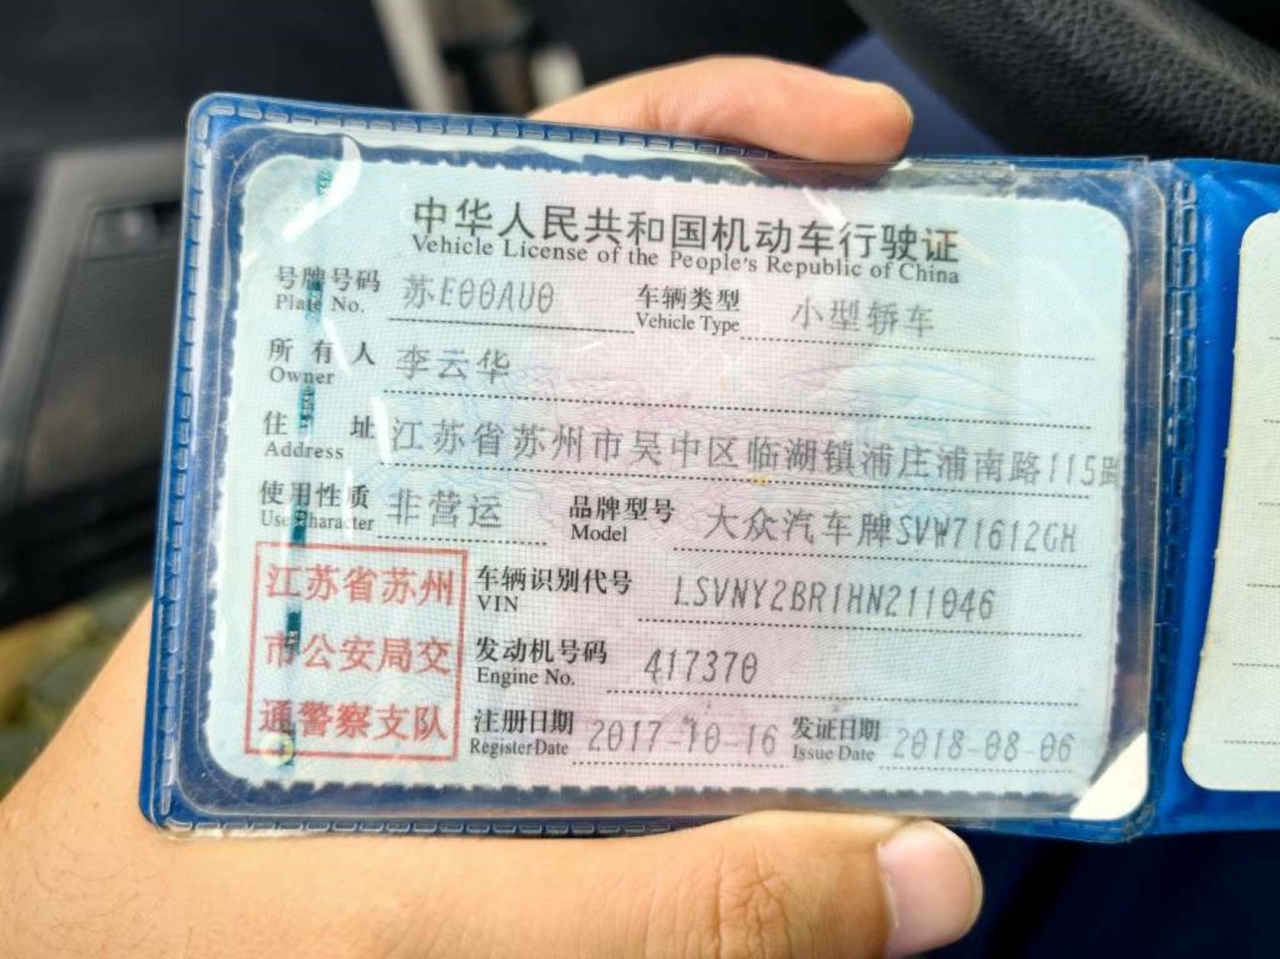 中华人民共和国机动车行驶证
Vehicle License of the People's Republic of China
号牌号码 苏E00AU0 车辆类型 小型轿车
Plate No. Vehicle Type
所有人 李云华
Owner
住址 江苏省苏州市吴中区临湖镇浦庄浦南路115
Address
使用性质 非营运 品牌型号 大众汽车牌SVW71612GH
Use Character Model
江苏省苏州
市公安局交
通警察支队
车辆识别代号 LSVNY2BR1HN211046
VIN
发动机号码 417370
Engine No.
注册日期 2017-10-16 发证日期 2018-08-06
Register Date Issue Date